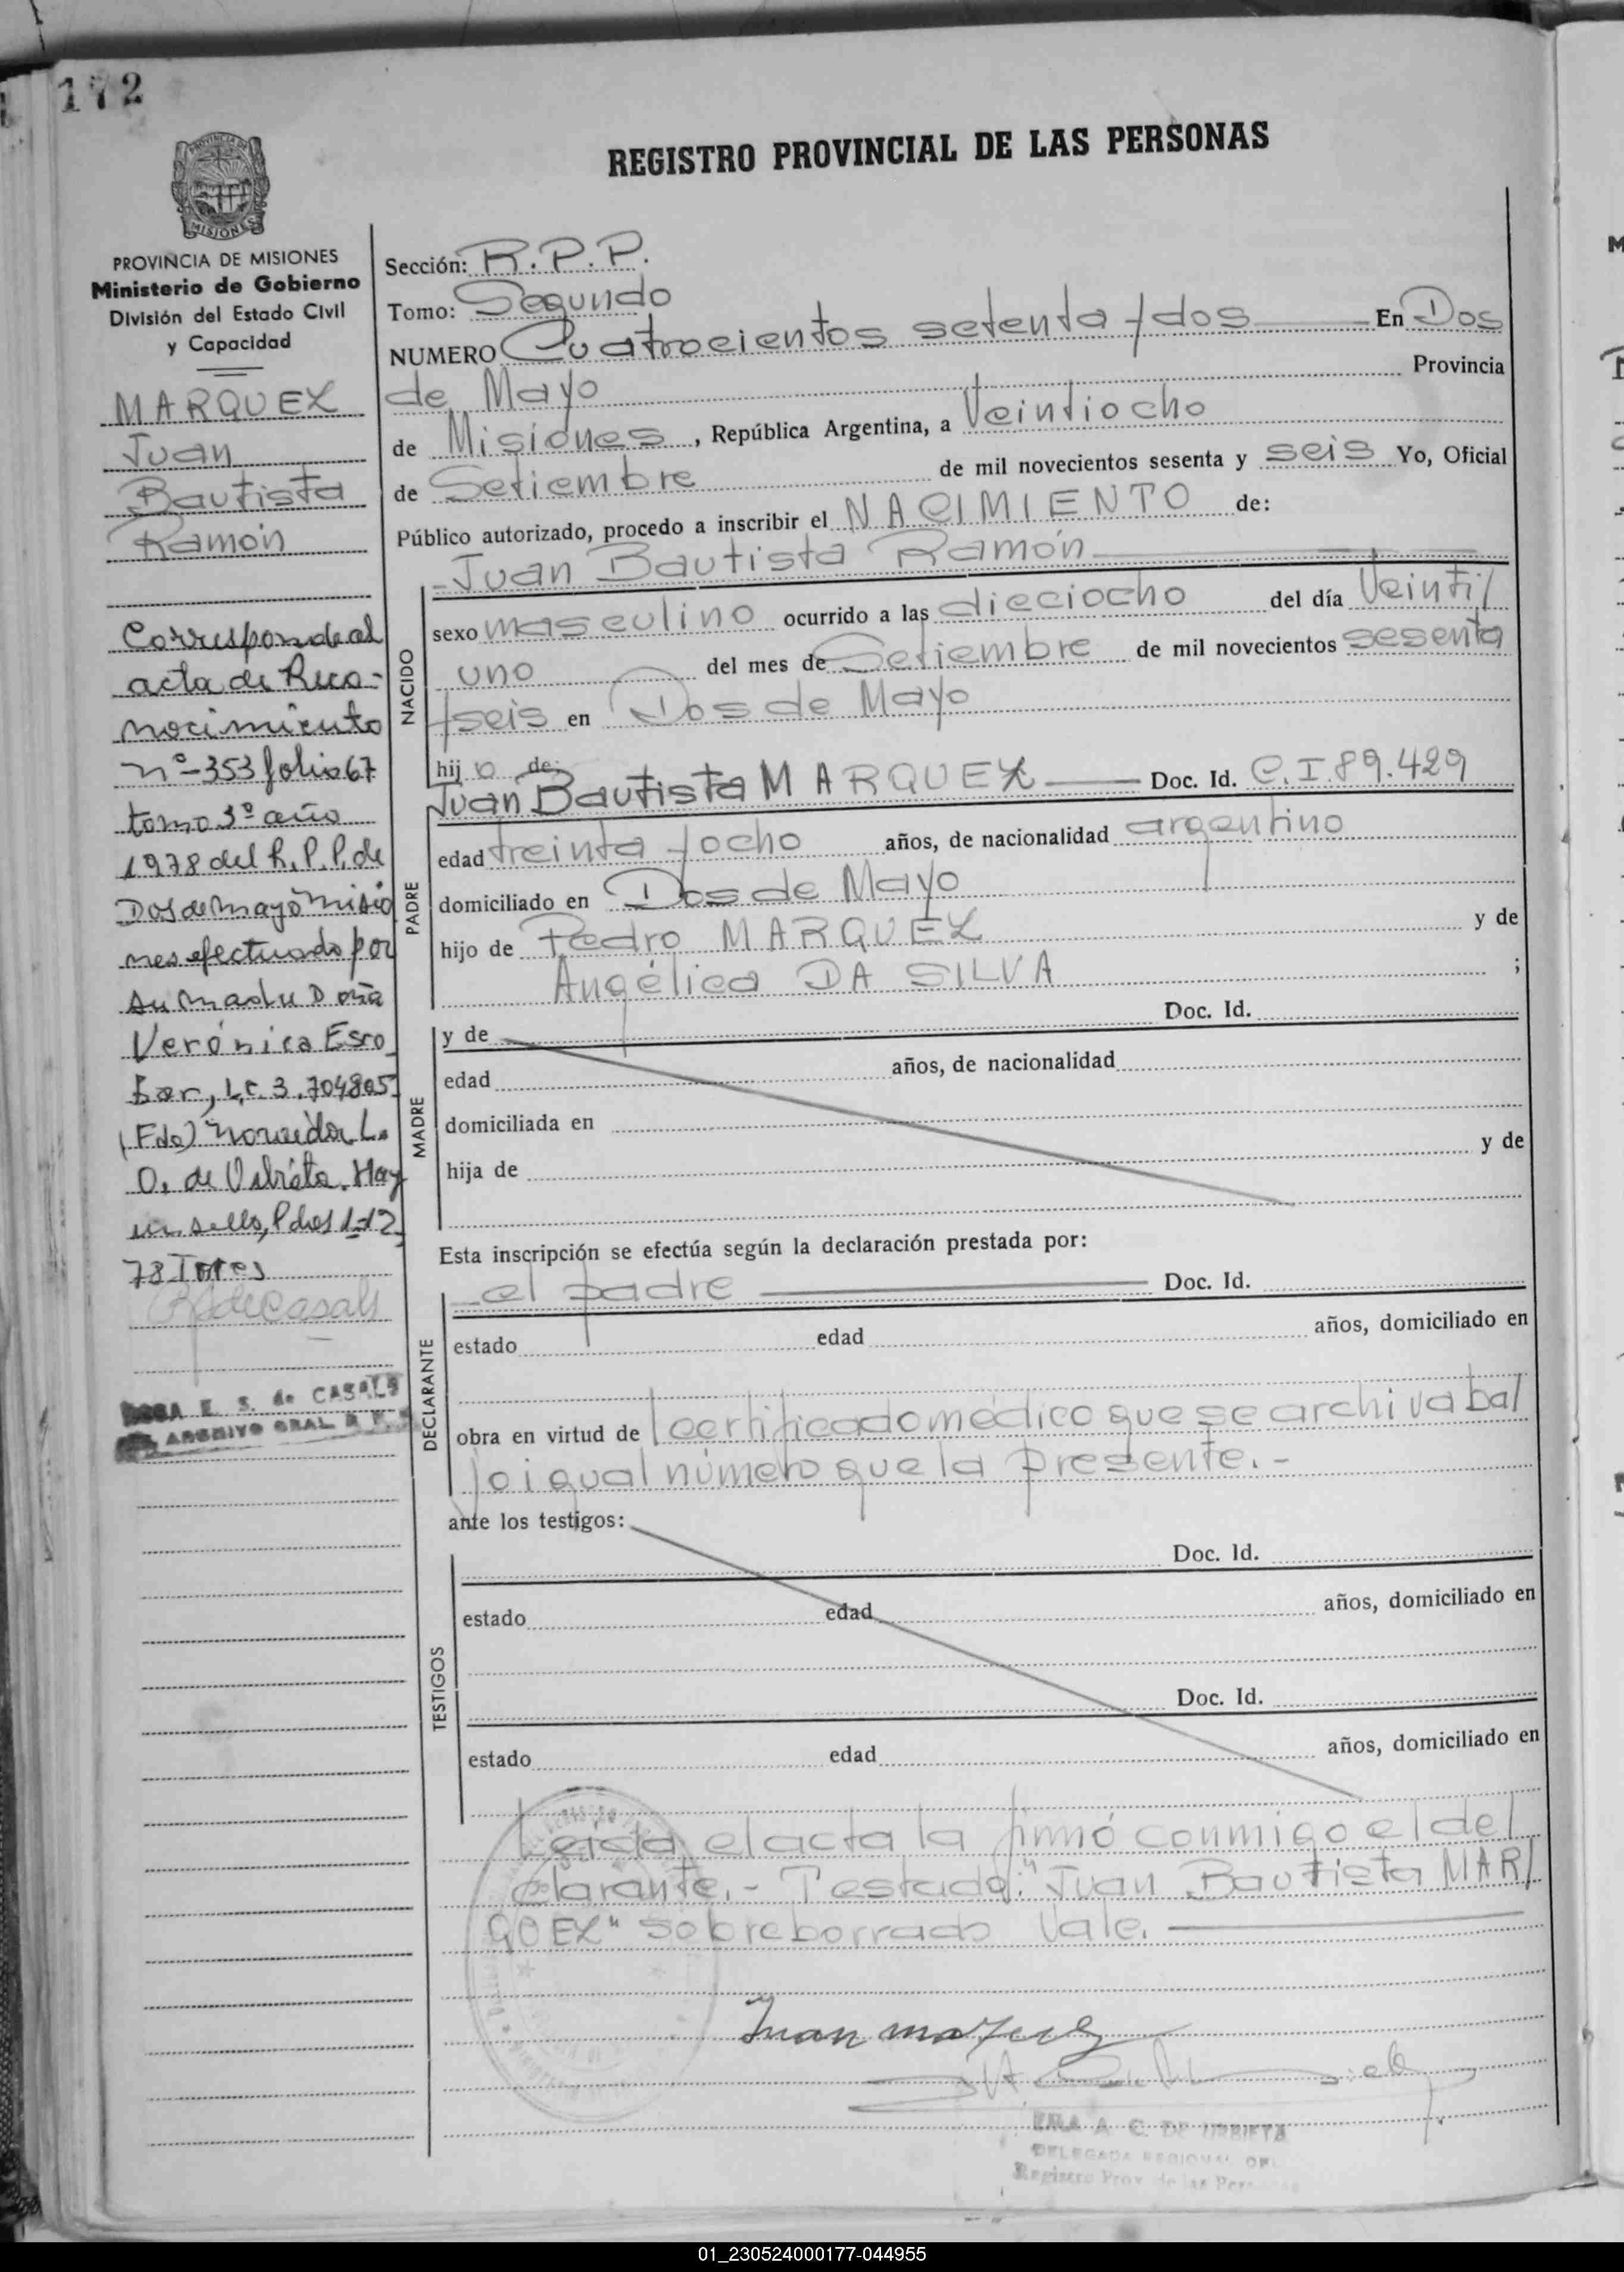 172
PROVINCIA DE MISIONES
REGISTRO PROVINCIAL DE LAS PERSONAS
PROVINCIA DE MISIONES
Ministerio de Gobierno
División del Estado Civil
y Capacidad
MARQUEZ
Juan
Bautista
Ramón
Corresponde al
acta de Reco-
nocimiento
nº-353 folio 67
tomo 3º año
1978 del R.P.P. de
Dos de Mayo Misio
nes efectuado por
su madre Doña
Verónica Esco
bar, L.C. 3.704805
(Fdo)
O. de Hay
un sello, Pdas 1-12
78
ROSA E. S. de CASALS
ARCHIVO GRAL R. P.
Sección: R.P.P.
Tomo: Segundo
NUMERO Cuatrocientos setenta y dos En Dos
de Mayo Provincia
de Misiones, República Argentina, a Veintiocho
de Setiembre de mil novecientos sesenta y seis Yo, Oficial
Público autorizado, procedo a inscribir el NACIMIENTO de:
Juan Bautista Ramón
NACIDO
sexo masculino ocurrido a las dieciocho del día Veinti/
uno del mes de Setiembre de mil novecientos sesenta
y seis en Dos de Mayo
hijo de:
Juan Bautista MARQUEZ Doc. Id. C.I.89.429
PADRE
edad treinta y ocho años, de nacionalidad argentino
domiciliado en Dos de Mayo
hijo de Pedro MARQUEZ y de
Angélica DA SILVA ;
MADRE
y de Doc. Id.
edad años, de nacionalidad
domiciliada en
hija de y de
Esta inscripción se efectúa según la declaración prestada por:
DECLARANTE
el padre Doc. Id.
estado edad años, domiciliado en
obra en virtud de l certificado médico que se archiva bal
jo igual número que la presente.-
ante los testigos:
TESTIGOS
Doc. Id.
estado edad años, domiciliado en
Doc. Id.
estado edad años, domiciliado en
Leída el acta la firmó conmigo el del
clarante.- Testado: "Juan Bautista MAR/
QUEZ" sobreborrado Vale.
Juan marquez
A. C. DE URBIETA
DELEGADA REGIONAL DEL
Registro Prov. de las Personas
01_230524000177-044955